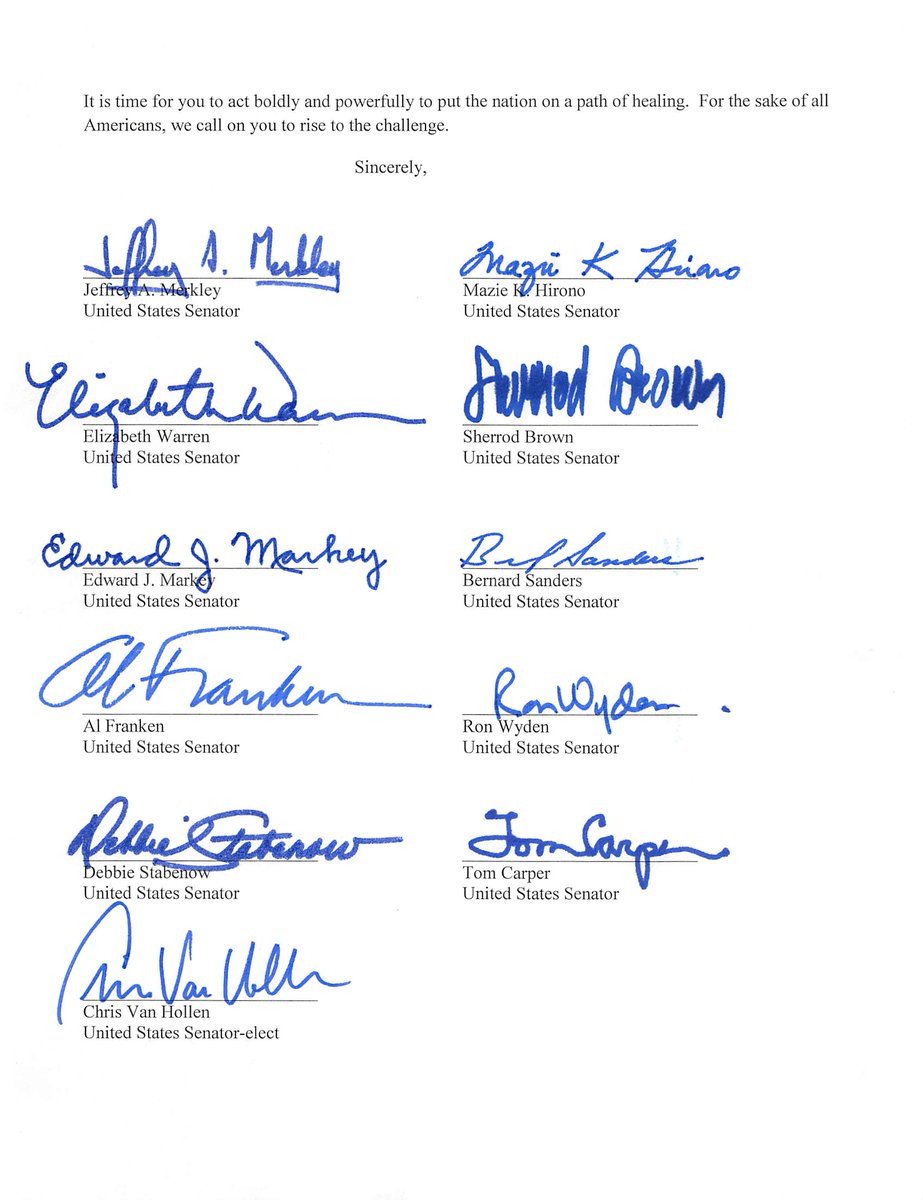 It is time for you to act boldly and powerfully to put the nation on a path of healing.  For the sake of all
Americans, we call on you to rise to the challenge.
Sincerely,
Jeffrey A. Merkley
Jeffrey A. Merkley
United States Senator
Mazie K Hirono
Mazie K. Hirono
United States Senator
Elizabeth Warren
Elizabeth Warren
United States Senator
Sherrod Brown
Sherrod Brown
United States Senator
Edward J. Markey
Edward J. Markey
United States Senator
Sanders
Bernard Sanders
United States Senator
Al Franken
Al Franken
United States Senator
Ron Wyden
Ron Wyden
United States Senator
Debbie Stabenow
Debbie Stabenow
United States Senator
Tom Carper
Tom Carper
United States Senator
Van Hollen
Chris Van Hollen
United States Senator-elect